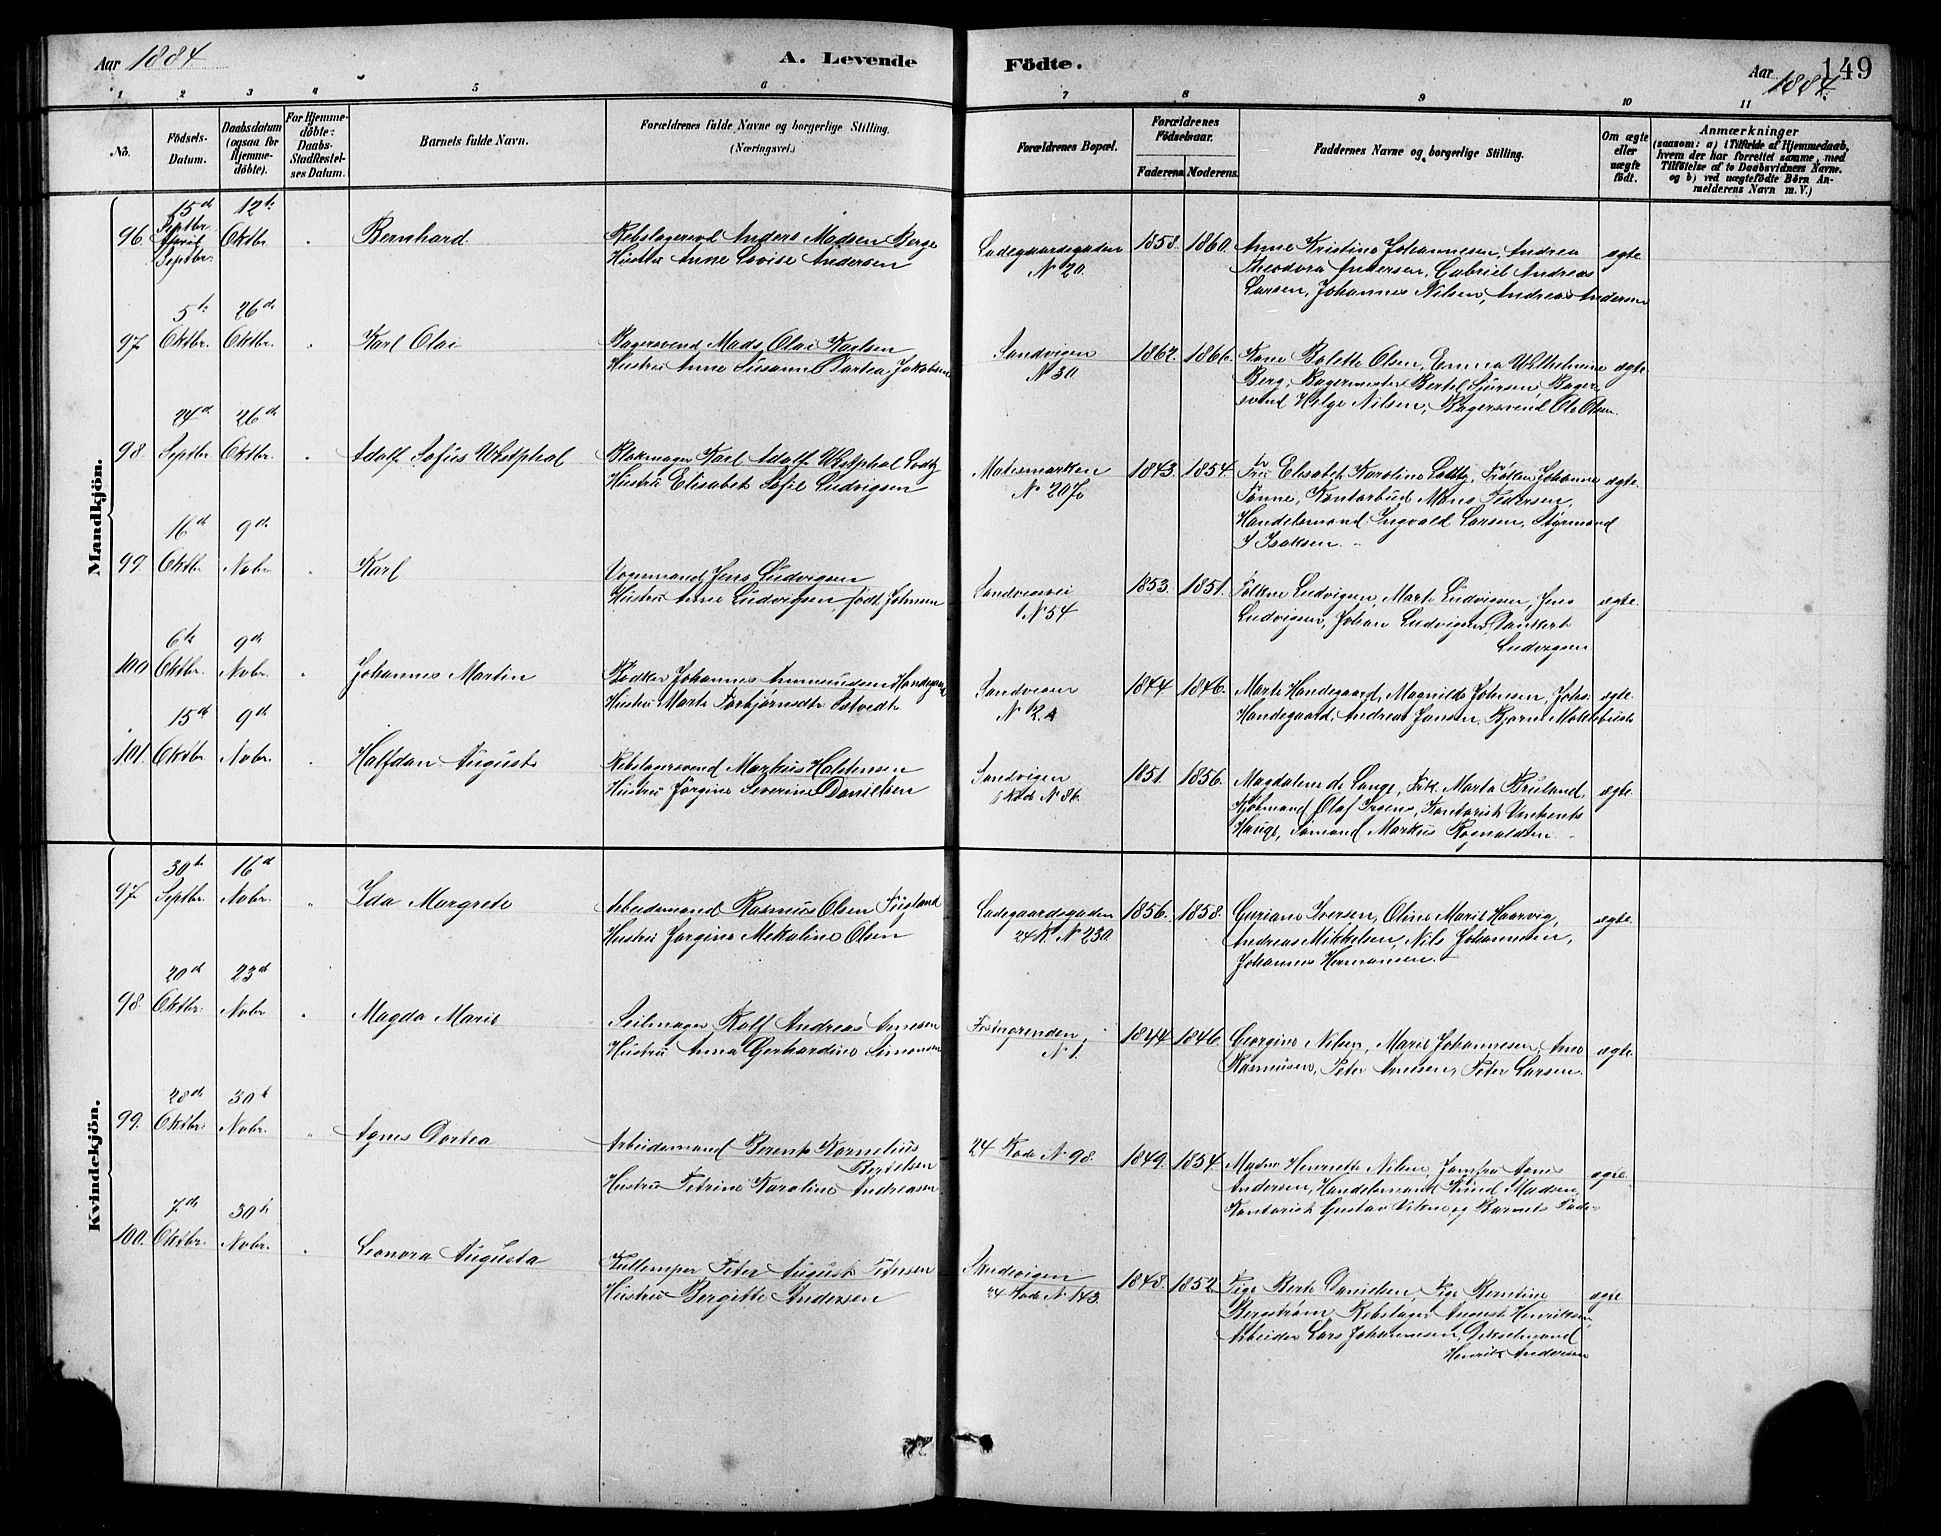 Aar 1884
A. Levende
Födte.
Aar 1884.
149
1 2 3 4 5 6 7 8 9 10 11
No.
Födsels-Datum.
Daabsdatum (ogsaa for Hjemme-döbte).
For Hjemme-döbte: Daabs-Stadfæstel-ses Datum.
Barnets fulde Navn.
Forældrenes fulde Navne og borgerlige Stilling.
(Næringsvei.)
Forældrenes Bopæl.
Forældrenes Födselsaar.
Faderens Moderens.
Faddernes Navne og borgerlige Stilling.
Om ægte eller uægte födt.
Anmærkninger
(saasom: a) i Tilfælde af Hjemmedaab,
hvem der har forrettet samme, med
Tilföielse af to Daabsvidners Navne.
og b) ved uægtefödte Börn An-
melderens Navn m. V.)
Mandkjön.
96. 15d Septbr. 12te Oktbr. Bernhard
Rebslagersvd Anders Madsen Berge
Hustru Anne Lovise Andersen
Ladegaardsgaden
N 20.
1858. 1860.
Anne Kristine Johannesen, Andrea
Theodora Andersen, Gabriel Andreas
Larsen, Johannes Nilsen, Andreas Andersen
ægte.
97. 5te Oktbr. 26de Oktbr. Karl Olai
Bagersvend Mads Olai Karlsen
Hustru Anne Susanne Dortea Jakobsen
Sandvigen
N 30.
1862. 1866.
Kone Bolette Olsen, Emma Wilhelmine
Berg, Bagermester Bertel Sjursen, Bager-
svend Helge Nilsen, Bagersvend Ole Olsen.
ægte.
98. 24d Septbr. 26de Oktbr. Adolf Sofus Westphal
Blokmager Karl Adolf Westphal Lodtz
Hustru Elisabet Sofie Ludvigsen
Mølesmarken
N 207b
1843. 1854.
Fru Elisabet Karoline Lodtz, Frøken Johanne
Tønne, Kontorbud Mons Pedersen,
Handelsmand Ingvald Larsen, Styrmand
I Isaksen.
ægte.
99. 16d Oktbr. 9de Novbr. Karl
Vognmand Jens Ludvigsen
Hustru Anne Ludvigsen, født Johnsen
Sandvigsvei
N 54
1853. 1851.
Ludvigsen, Marte Ludvigsen, Jens
Ludvigsen, Johan Ludvigsen, Dankert
Ludvigsen
ægte.
100 6te Oktbr. 9de Novbr. Johannes Martin
Bødker Johannes Ammundsen Handegaard
Hustru Marte Torbjørnsdtr Totvedt
Sandvigen
N 12.
1844 1846.
Marte Handegaard, Magnilda Johnsen, Johs.
Handegaard, Andreas Jansen, Bjørn Moldebust
ægte.
101. 15d Oktbr. 9de Novbr. Halfdan August
Rebslagersvend Markus Halstensen
Hustru Jørgine Severine Danielsen
Sandvigen
Rode N 86.
1851. 1856.
Magdalene de Lange, Frk. Marta Bruland,
Kjøbmand Olaf Irgens, Kontorist
Hauge, Sømand Markus Rognaldsen.
ægte.
Kvindekjön.
97. 30te Septbr. 16d Novbr. Ida Margrete
Arbeidsmand Rasmus Olsen Fuglland
Hustru Jørgine Mekaline Olsen
Ladegaardsgaden
24 R. N 230.
1856. 1858.
Guriane Iversen, Oline Marie Haarvig,
Andreas Mikkelsen, Nils Johannesen,
Johannes Hermansen.
ægte.
98. 20d Oktbr. 23d Novbr Magda Marie
Seilmager Rolf Andreas Arnesen
Hustru Anna Gerhardine Simonsen
N 1.
1844 1846.
Georgine Nilsen, Marie Johannesen, Arne
Rasmusen, Peter Arnesen, Peter Larsen.
ægte.
99. 28de Oktbr. 30te Novbr. Agnes Dortea
Arbeidsmand Berent Kornelius
Bertelsen
Hustru Petrine Karoline Andreasen.
24 Rode N 98.
1849. 1854
Madm. Henriette Nilsen, Jomfru Agnes
Andersen, Handelsmand Knud Madsen,
Kontorist Gustav Vikne og Barnets Fader
ægte.
100. 7de Oktbr. 30te Novbr. Leonora Augusta
Kullemper Peter August Pedersen
Hustru Bergitte Andersen
Sandvigen
24 Rode N 143.
1848. 1852
Pige Berte Danielsen, Pige Berntine
Bergstrøm, Rebslager August Henriksen,
Arbeider Lars Johannesen, Dikselmand
Henrik Andersen
ægte